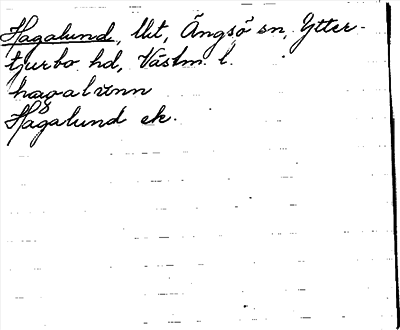 Hagalund, lht, Ängsö sn, Ytter-
tjurbo hd, Västm. l.
hagalunn
Hagalund ek.